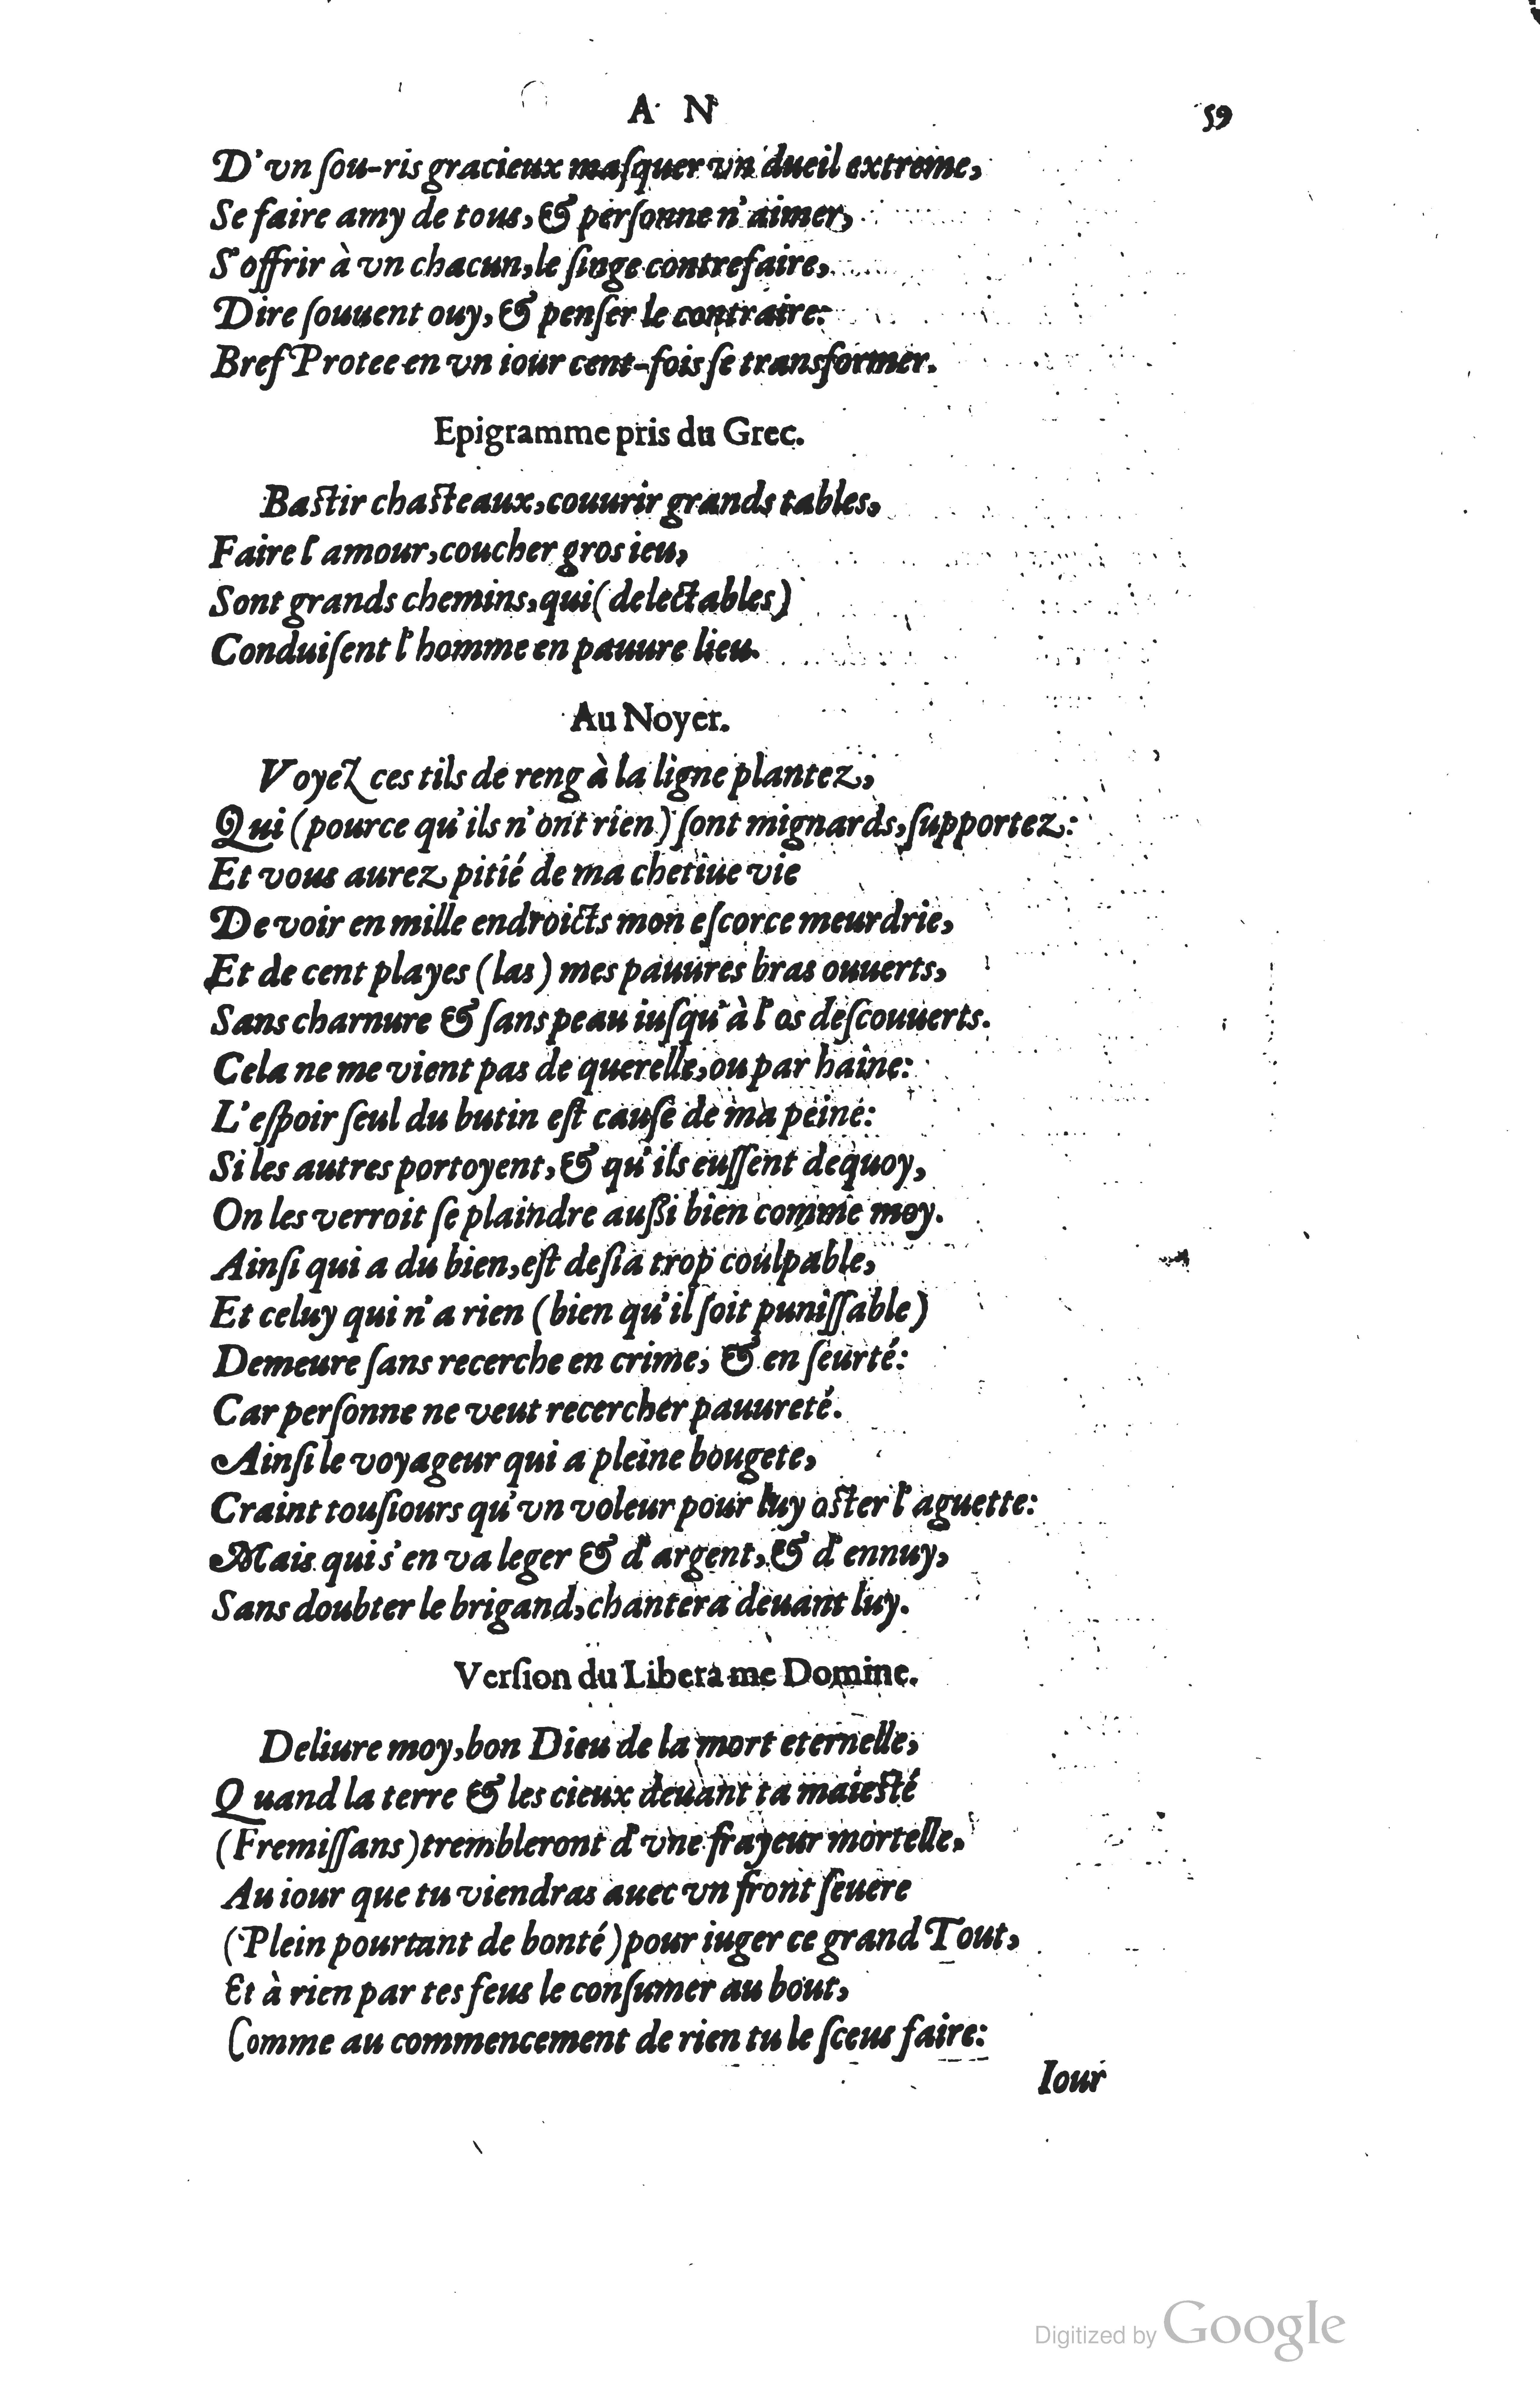 A N 59
D'vn ſou-ris gracieux maſquer vn dueil extreme,
Se faire amy de tous, & perſonne n'aimer,
S'offrir à vn chacun, le ſinge contrefaire,
Dire ſouuent ouy, & penſer le contraire:
Bref Protee en vn iour cent-fois ſe transformer.
Epigramme pris du Grec.
Baſtir chaſteaux, couurir grands tables,
Faire l'amour, coucher gros ieu,
Sont grands chemins, qui (delectables)
Conduiſent l'homme en pauure lieu.
Au Noyer.
Voyez ces tils de reng à la ligne plantez,
Qui (pource qu'ils n'ont rien) ſont mignards, ſupportez:
Et vous aurez pitié de ma chetiue vie
De voir en mille endroicts mon eſcorce meurdrie,
Et de cent playes (las) mes pauures bras ouuerts,
Sans charnure & ſans peau iuſqu'à l'os deſcouuerts.
Cela ne me vient pas de querelle, ou par haine:
L'eſpoir ſeul du butin eſt cauſe de ma peine:
Si les autres portoyent, & qu'ils euſſent dequoy,
On les verroit ſe plaindre außi bien comme moy.
Ainſi qui a du bien, eſt deſia trop coulpable,
Et celuy qui n'a rien (bien qu'il ſoit puniſſable)
Demeure ſans recerche en crime, & en ſeurté:
Car perſonne ne veut recercher pauureté.
Ainſi le voyageur qui a pleine bougete,
Craint touſiours qu'vn voleur pour luy oſter l'aguette:
Mais qui s'en va leger & d'argent, & d'ennuy,
Sans doubter le brigand, chantera deuant luy.
Verſion du Libera me Domine.
Deliure moy, bon Dieu de la mort eternelle,
Quand la terre & les cieux deuant ta maieſté
(Fremiſſans) trembleront d'vne frayeur mortelle,
Au iour que tu viendras auec vn front ſeuere
(Plein pourtant de bonté) pour iuger ce grand Tout,
Et à rien par tes feus le conſumer au bout,
Comme au commencement de rien tu le ſceus faire:
Iour
Digitized by Google